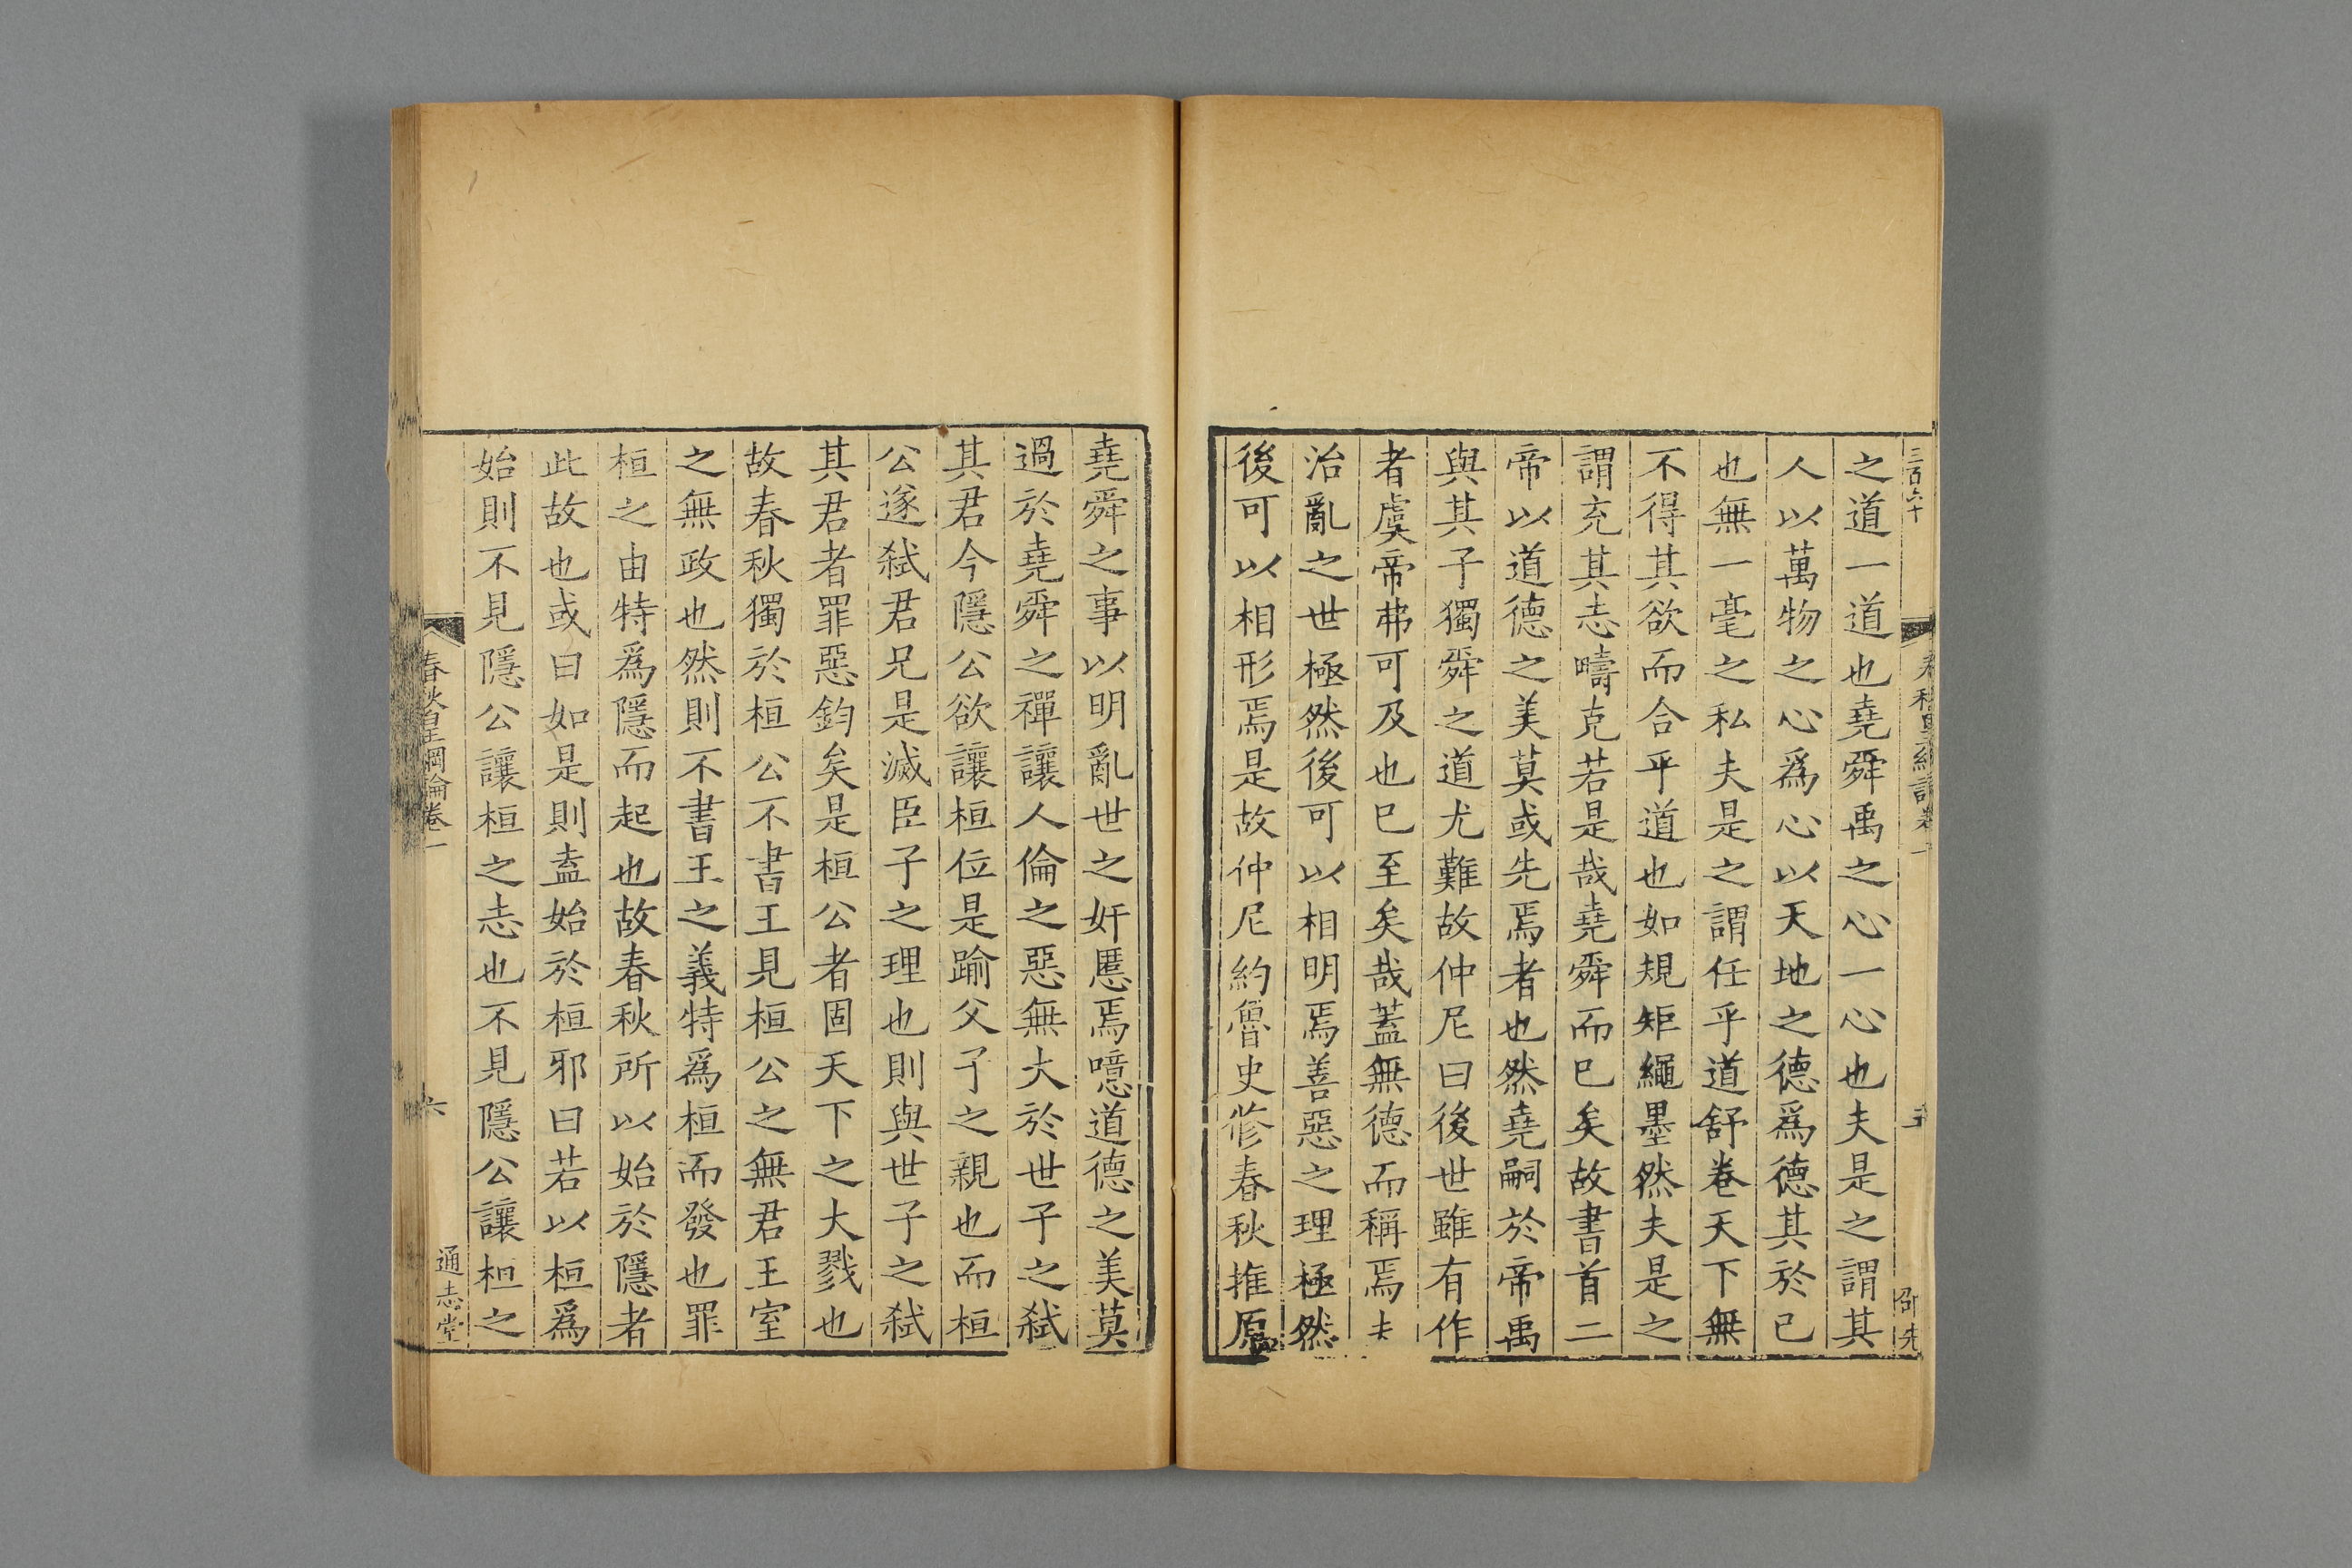 三百六十
春秋皇綱論卷一
五
邵先
之道一道也堯舜禹之心一心也夫是之謂其
人以萬物之心爲心以天地之德爲德其於已
也無一毫之私夫是之謂任乎道舒卷天下無
不得其欲而合乎道也如規矩繩墨然夫是之
謂充其志疇克若是哉堯舜而已矣故書首二
帝以道德之美莫或先焉者也然堯嗣於帝禹
與其子獨舜之道尤難故仲尼曰後世雖有作
者虞帝弗可及也已至矣哉蓋無德而稱焉夫
治亂之世極然後可以相明焉善惡之理極然
後可以相形焉是故仲尼約魯史修春秋推原
堯舜之事以明亂世之奸慝焉噫道德之美莫
過於堯舜之禪讓人倫之惡無大於世子之弑
其君今隱公欲讓桓位是踰父子之親也而桓
公遂弑君兄是滅臣子之理也則與世子之弑
其君者罪惡鈞矣是桓公者固天下之大戮也
故春秋獨於桓公不書王見桓公之無君王室
之無政也然則不書王之義特爲桓而發也罪
桓之由特爲隱而起也故春秋所以始於隱者
此故也或曰如是則盍始於桓邪曰若以桓爲
始則不見隱公讓桓之志也不見隱公讓桓之
春秋皇綱論卷一
六
通志堂